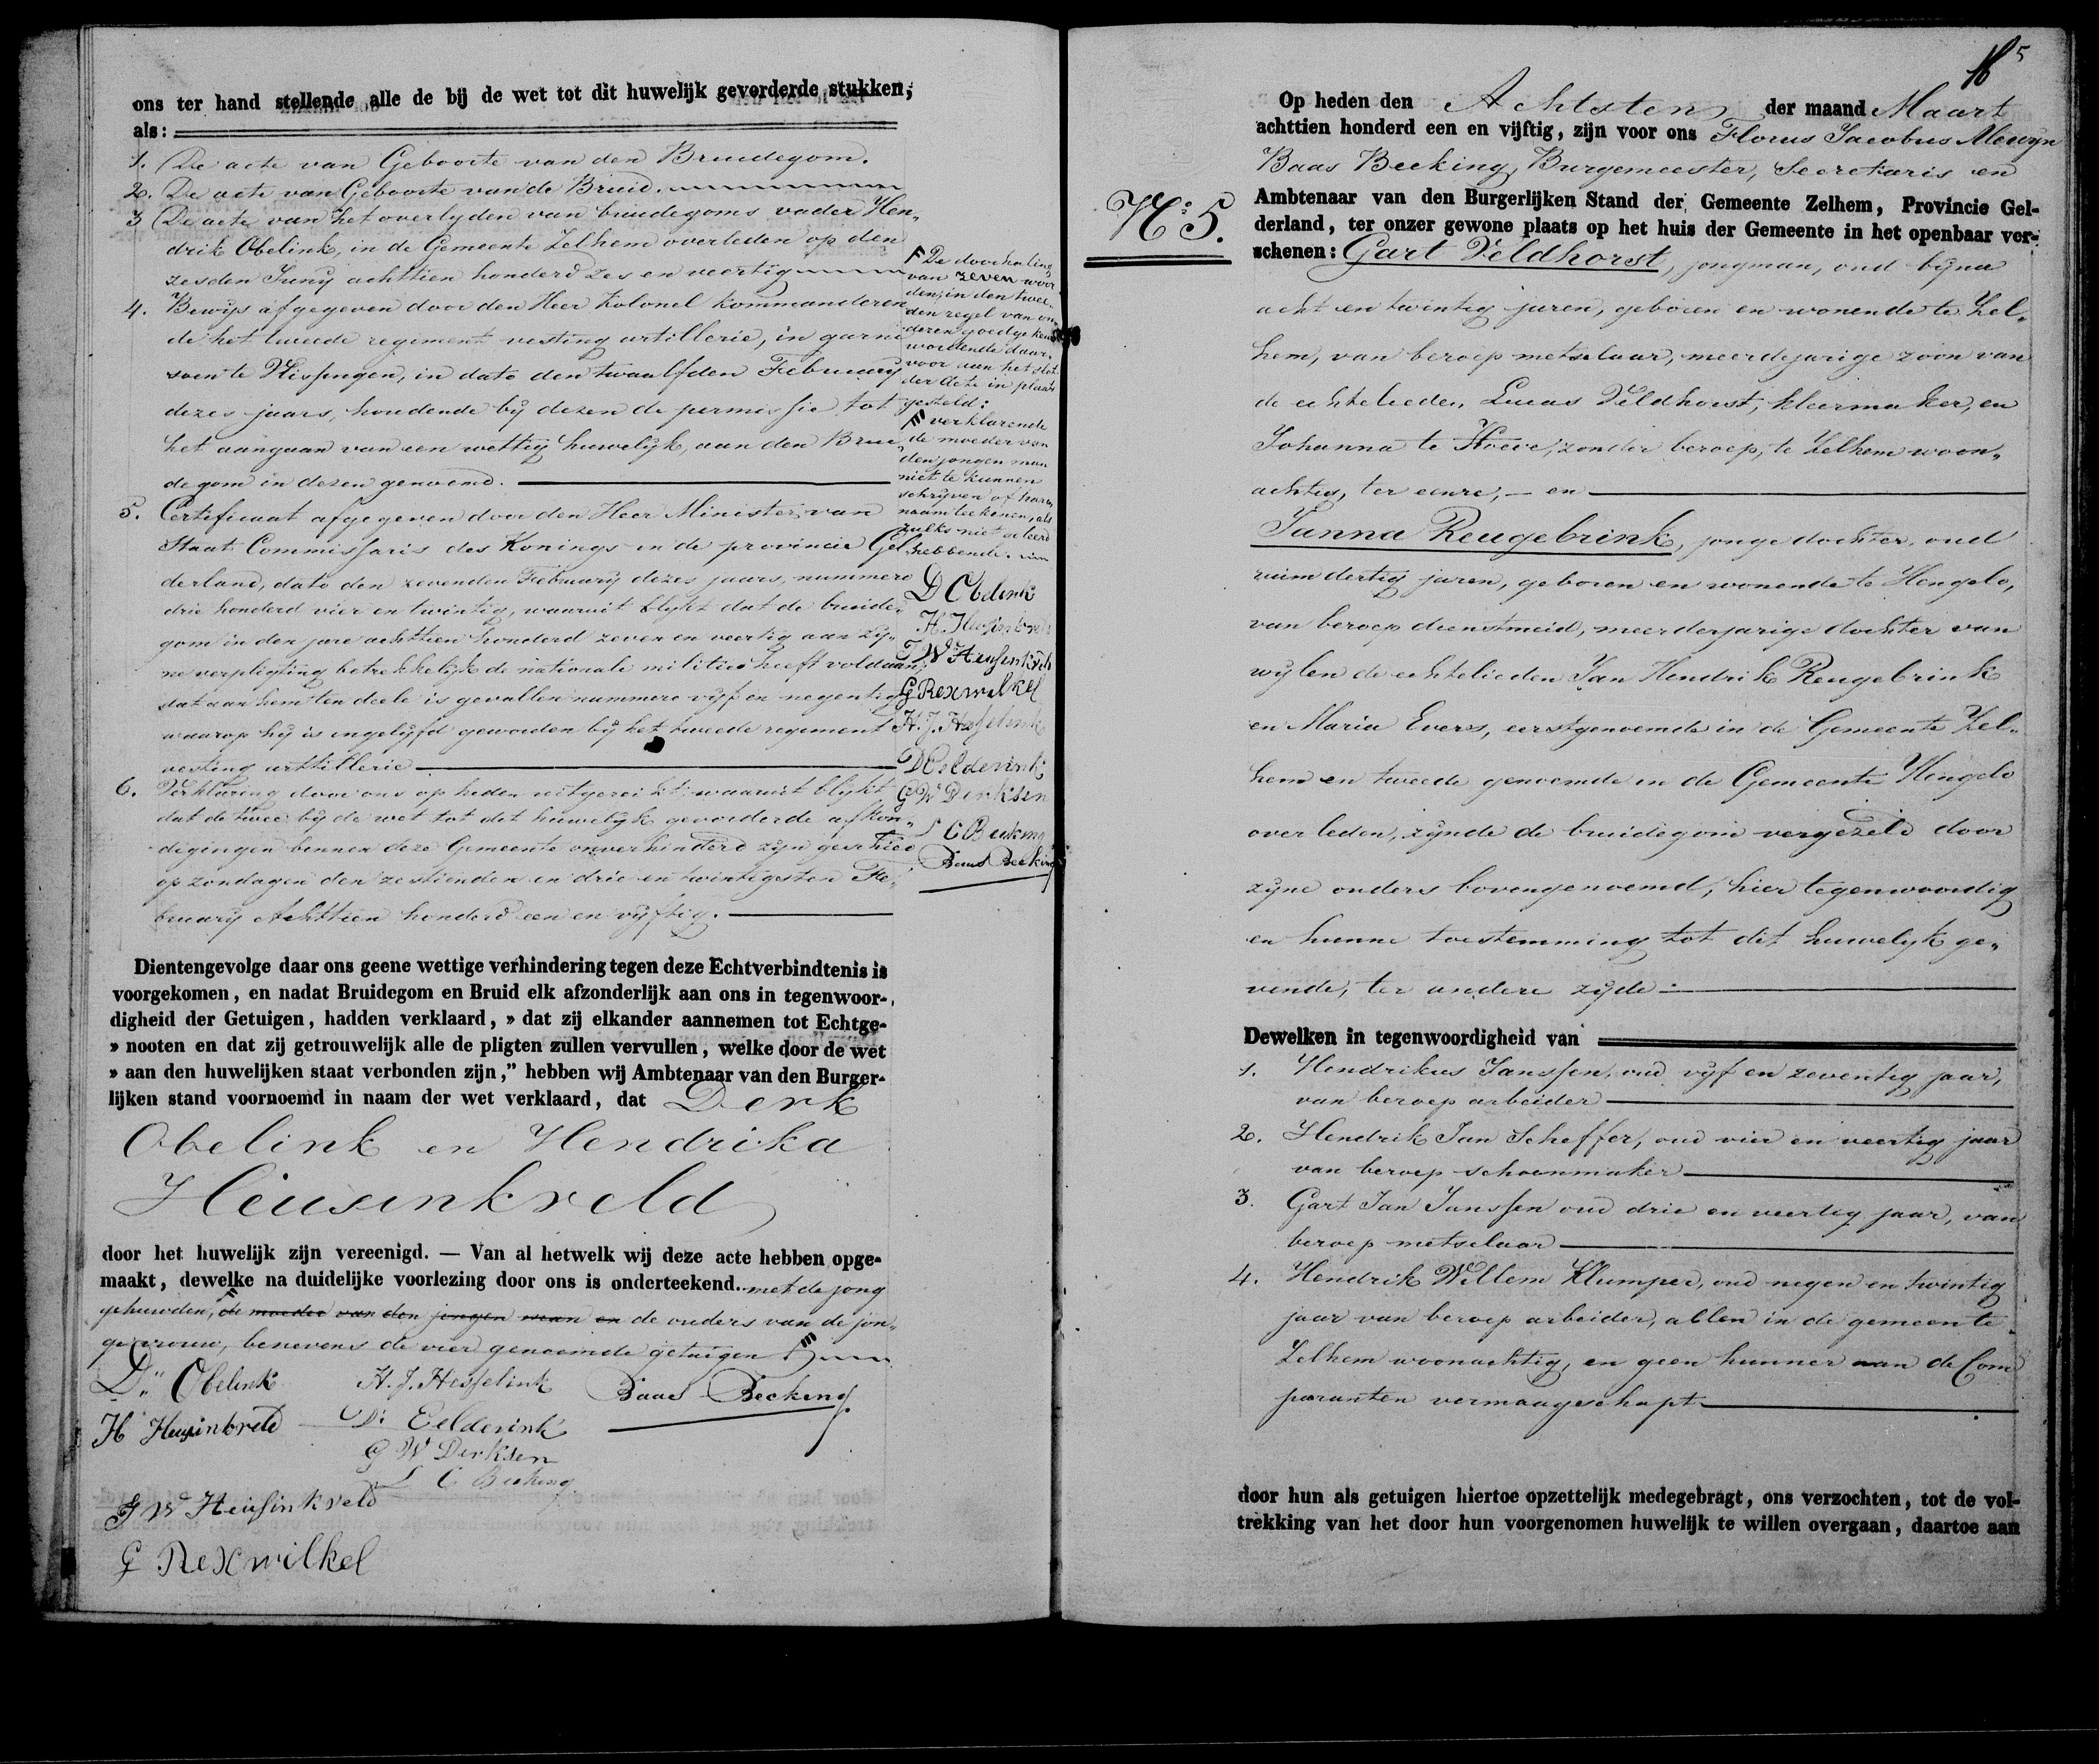 ons ter hand stellende alle de bij de wet tot dit huwelijk gevorderde stukken,
als:
1. De acte van Geboorte van den Bruidegom.
2. De acte van Geboorte van de Bruid.
3 De acte van het overlyden van bruidegoms vader Hen„
drik Obelink, in de Gemeente Zelhem overleden op den
zesden Juny achttien honderd zes en veertig
4. Bewys afgegeven door den Heer Kolonel kommanderen
de het tweede regiment vesting artillerie, in garni
soen te Vlissingen, in dato den twaalfden February
dezes jaars, houdende by dezen de permissie tot
het aangaan van een wettig huwelyk aan den Brui„
degom in dezen genoemd.
5. Certificaat afgegeven door den Heer Minister van
Staat Commissaris des Konings in de provincie Gel
derland, dato den zevenden February dezes jaars, nummero
drie honderd vier en twintig, waaruit blykt dat de bruide„
gom in den jare achttien honderd zeven en veertig aan zy„
ne verpligting betrekkelyk de nationale militie heeft voldaan,
dat aan hem ten deele is gevallen nummero vyf en negentig
waarop hy is ingelyfd geworden by het tweede regiment
vesting artillerie
6. Verklaring door ons op heden uitgereikt waaruit blykt
dat de twee by de wet tot dit huwelyk gevorderde afkon„
digingen binnen deze Gemeente onverhinderd zyn geschied
op zondagen den zestienden en drie en twintigsten Fe„
bruary Achttien honderd een en vyftig.
F De doorhaling
van zeven woor
den, in den twee„
den regel van on„
deren goedgekeurd
wordende daar„
voor aan het slot
der Acte in plaats
gesteld:
F verklarende
de moeder van
den jongen man
niet te kunnen
schryven of haren
naam teekenen, als
zulks niet geleerd
hebbende.
D Obelink
H. Heusinkveld
J W Heusinkveld
G Rexwilkel
H. J. Hesselink
D Eelderink
G W Derksen
L C Becking
Baas Becking
Dientengevolge daar ons geene wettige verhindering tegen deze Echtverbindtenis is
voorgekomen, en nadat Bruidegom en Bruid elk afzonderlijk aan ons in tegenwoor-
digheid der Getuigen, hadden verklaard, » dat zij elkander aannemen tot Echtge-
» nooten en dat zij getrouwelijk alle de pligten zullen vervullen, welke door de wet
» aan den huwelijken staat verbonden zijn,” hebben wij Ambtenaar van den Burger-
lijken stand voornoemd in naam der wet verklaard, dat Derk
Obelink en Hendrika
Heusinkveld
door het huwelijk zijn vereenigd. — Van al hetwelk wij deze acte hebben opge-
maakt, dewelke na duidelijke voorlezing door ons is onderteekend. met de jong
gehuwden, de moeder van den jongen man en de ouders van de jon„
ge vrouw, benevens de vier genoemde getuigen F
D. Obelink H. J. Hesselink Baas Becking
H Heusinkveld D: Eelderink
G W Derksen
L C Becking
J W Heusinkveld
G Rexwilkel
5
Op heden den Achtsten der maand Maart
achttien honderd een en vijftig, zijn voor ons Florus Jacobus Mewyn
Baas Becking, Burgemeester, Secretaris en
N: 5.
Ambtenaar van den Burgerlijken Stand der Gemeente Zelhem, Provincie Gel-
derland, ter onzer gewone plaats op het huis der Gemeente in het openbaar ver-
schenen: Gart Veldhorst, jongman, oud byna
acht en twintig jaren, geboren en wonende te Zel„
hem, van beroep metselaar, meerdejarige zoon van
de echtelieden Lucas Veldhorst, kleermaker, en
Johanna te Hoeve, zonder beroep, te Zelhem woon„
achtig, ter eenre, — en
Janna Reugebrink, jonge dochter, oud
ruim dertig jaren, geboren en wonende te Hengelo,
van beroep dienstmeid, meerderjarige dochter van
wylen de echtelieden Jan Hendrik Reugebrink
en Maria Evers, eerstgenoemde in de Gemeente Zel„
hem en tweede genoemde in de Gemeente Hengelo
overleden, zynde de bruidegom vergezeld door
zyne ouders bovengenoemd, hier tegenwoordig
en hunne toestemming tot dit huwelyk ge„
vende, ter andere zyde
Dewelken in tegenwoordigheid van
1. Hendrikus Janssen, oud vyf en zeventig jaar,
van beroep arbeider
2. Hendrik Jan Scheffer, oud vier en veertig jaar
van beroep schoenmaker
3. Gart Jan Janssen oud drie en veertig jaar, van
beroep metselaar
4. Hendrik Willem Klumper, oud negen en twintig
jaar van beroep arbeider, allen in de gemeente
Zelhem woonachtig, en geen hunner aan de Com
paranten vermaagschapt
door hun als getuigen hiertoe opzettelijk medegebragt, ons verzochten, tot de vol-
trekking van het door hun voorgenomen huwelijk te willen overgaan, daartoe aan